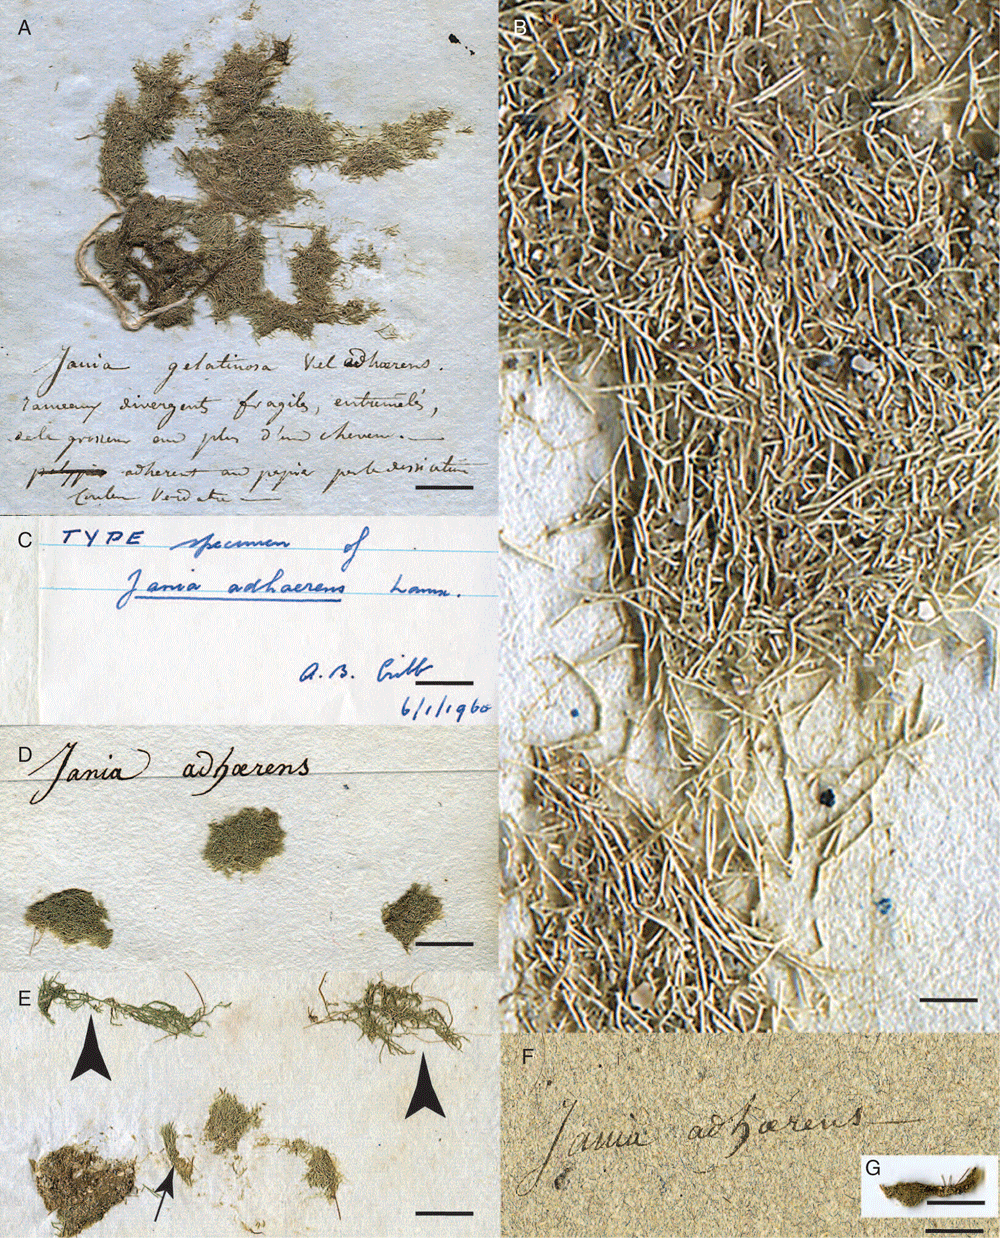 A
Jania gelatinosa Vel adhærens.
rameaux divergents fragiles, entremêlés,
de la grosseur au plus d'un cheveu.
adherent au papier par la dessication
Couleur Verdatre
B
C
TYPE specimen of
Jania adhaerens Lamx.
A.B. Cribb
6/1/1960
D
Jania adhærens
E
F
Jania adhærens
G